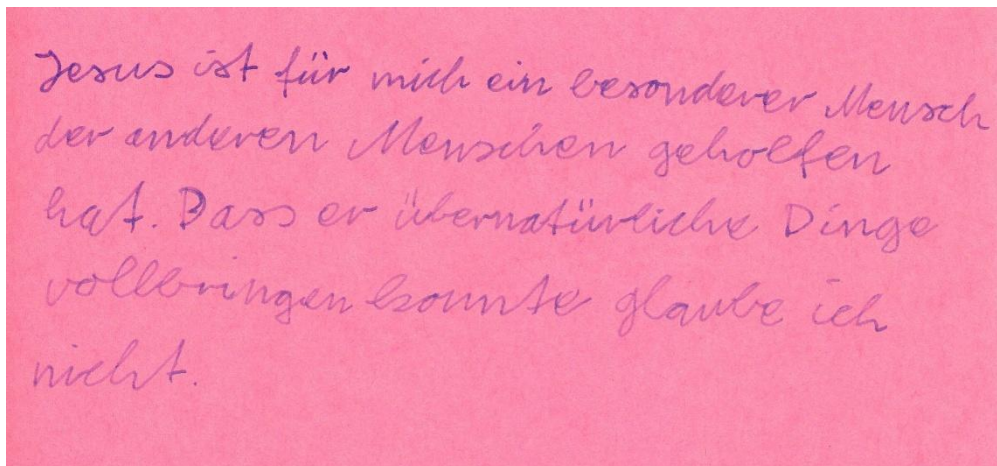 Jesus ist für mich ein besonderer Mensch
der anderen Menschen geholfen
hat. Dass er übernatürliche Dinge
vollbringen konnte glaube ich
nicht.